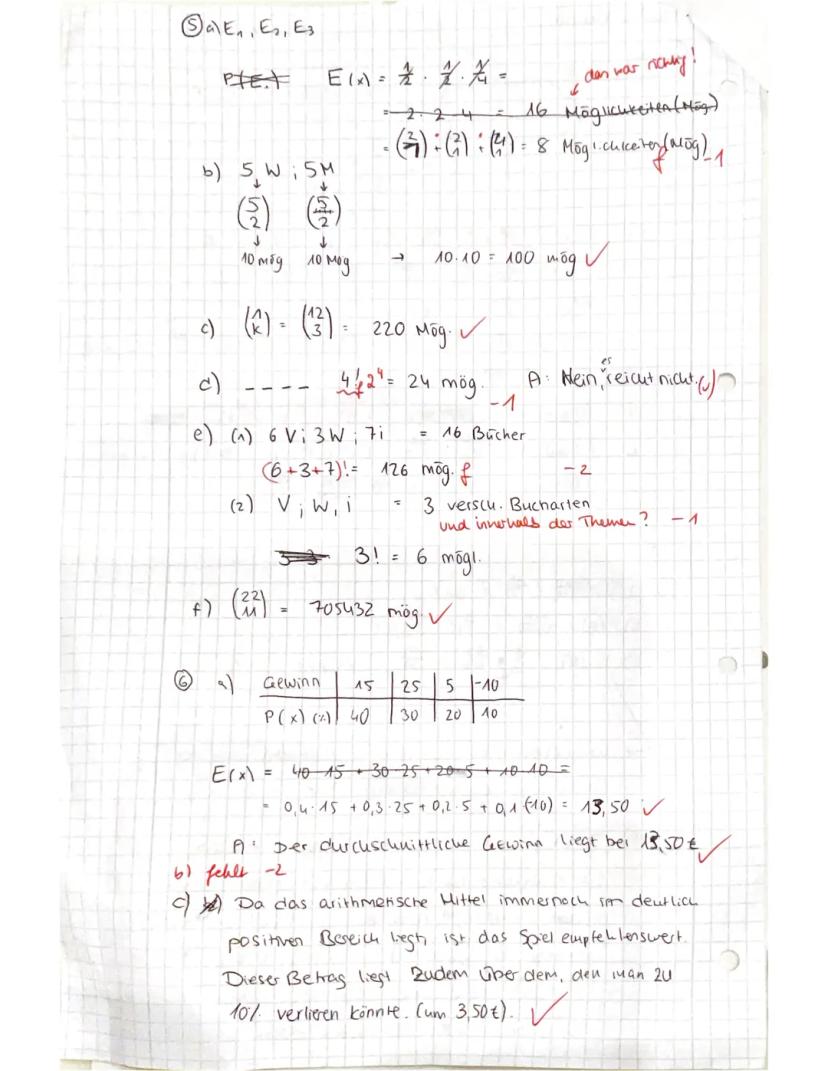 ⑤ a) E₁, E₂, E₃
P(E.) E(x) = 1/2 · 1/2 · 1/4 = das war richtig!
= 2 · 2 · 4 = 16 Möglichkeiten (Mög)
= (2 1) + (2 1) + (4 1) = 8 Möglichkeiten (Mög) f -1
b) 5 W ; 5 M
(5 2) (5 2)
10 mög 10 Mög → 10·10 = 100 mög ✓
c) (n k) = (12 3) = 220 Mög. ✓
d) ---- 4! f 2⁴ = 24 mög. -1 A: Nein, es reicht nicht. (✓)
e) (1) 6 V ; 3 W ; 7 i = 16 Bücher
(6+3+7)! = 126 mög. f -2
(2) V ; W, i = 3 versch. Bucharten
und innerhalb der Themen? -1
3! = 6 mögl.
f) (22 11) = 705432 mög. ✓
⑥ a) Gewinn 15 25 5 -10
P(x) (%) 40 30 20 10
E(x) = 40·15 + 30·25 + 20·5 + 10·10 =
= 0,4·15 + 0,3·25 + 0,2·5 + 0,1·(-10) = 13,50 ✓
A: Der durchschnittliche Gewinn liegt bei 13,50 € ✓
b) fehlt -2
c) b) Da das arithmetische Mittel immernoch im deutlich
positiven Bereich liegt, ist das Spiel empfehlenswert.
Dieser Betrag liegt zudem über dem, den man zu
10% verlieren könnte. (um 3,50€). ✓